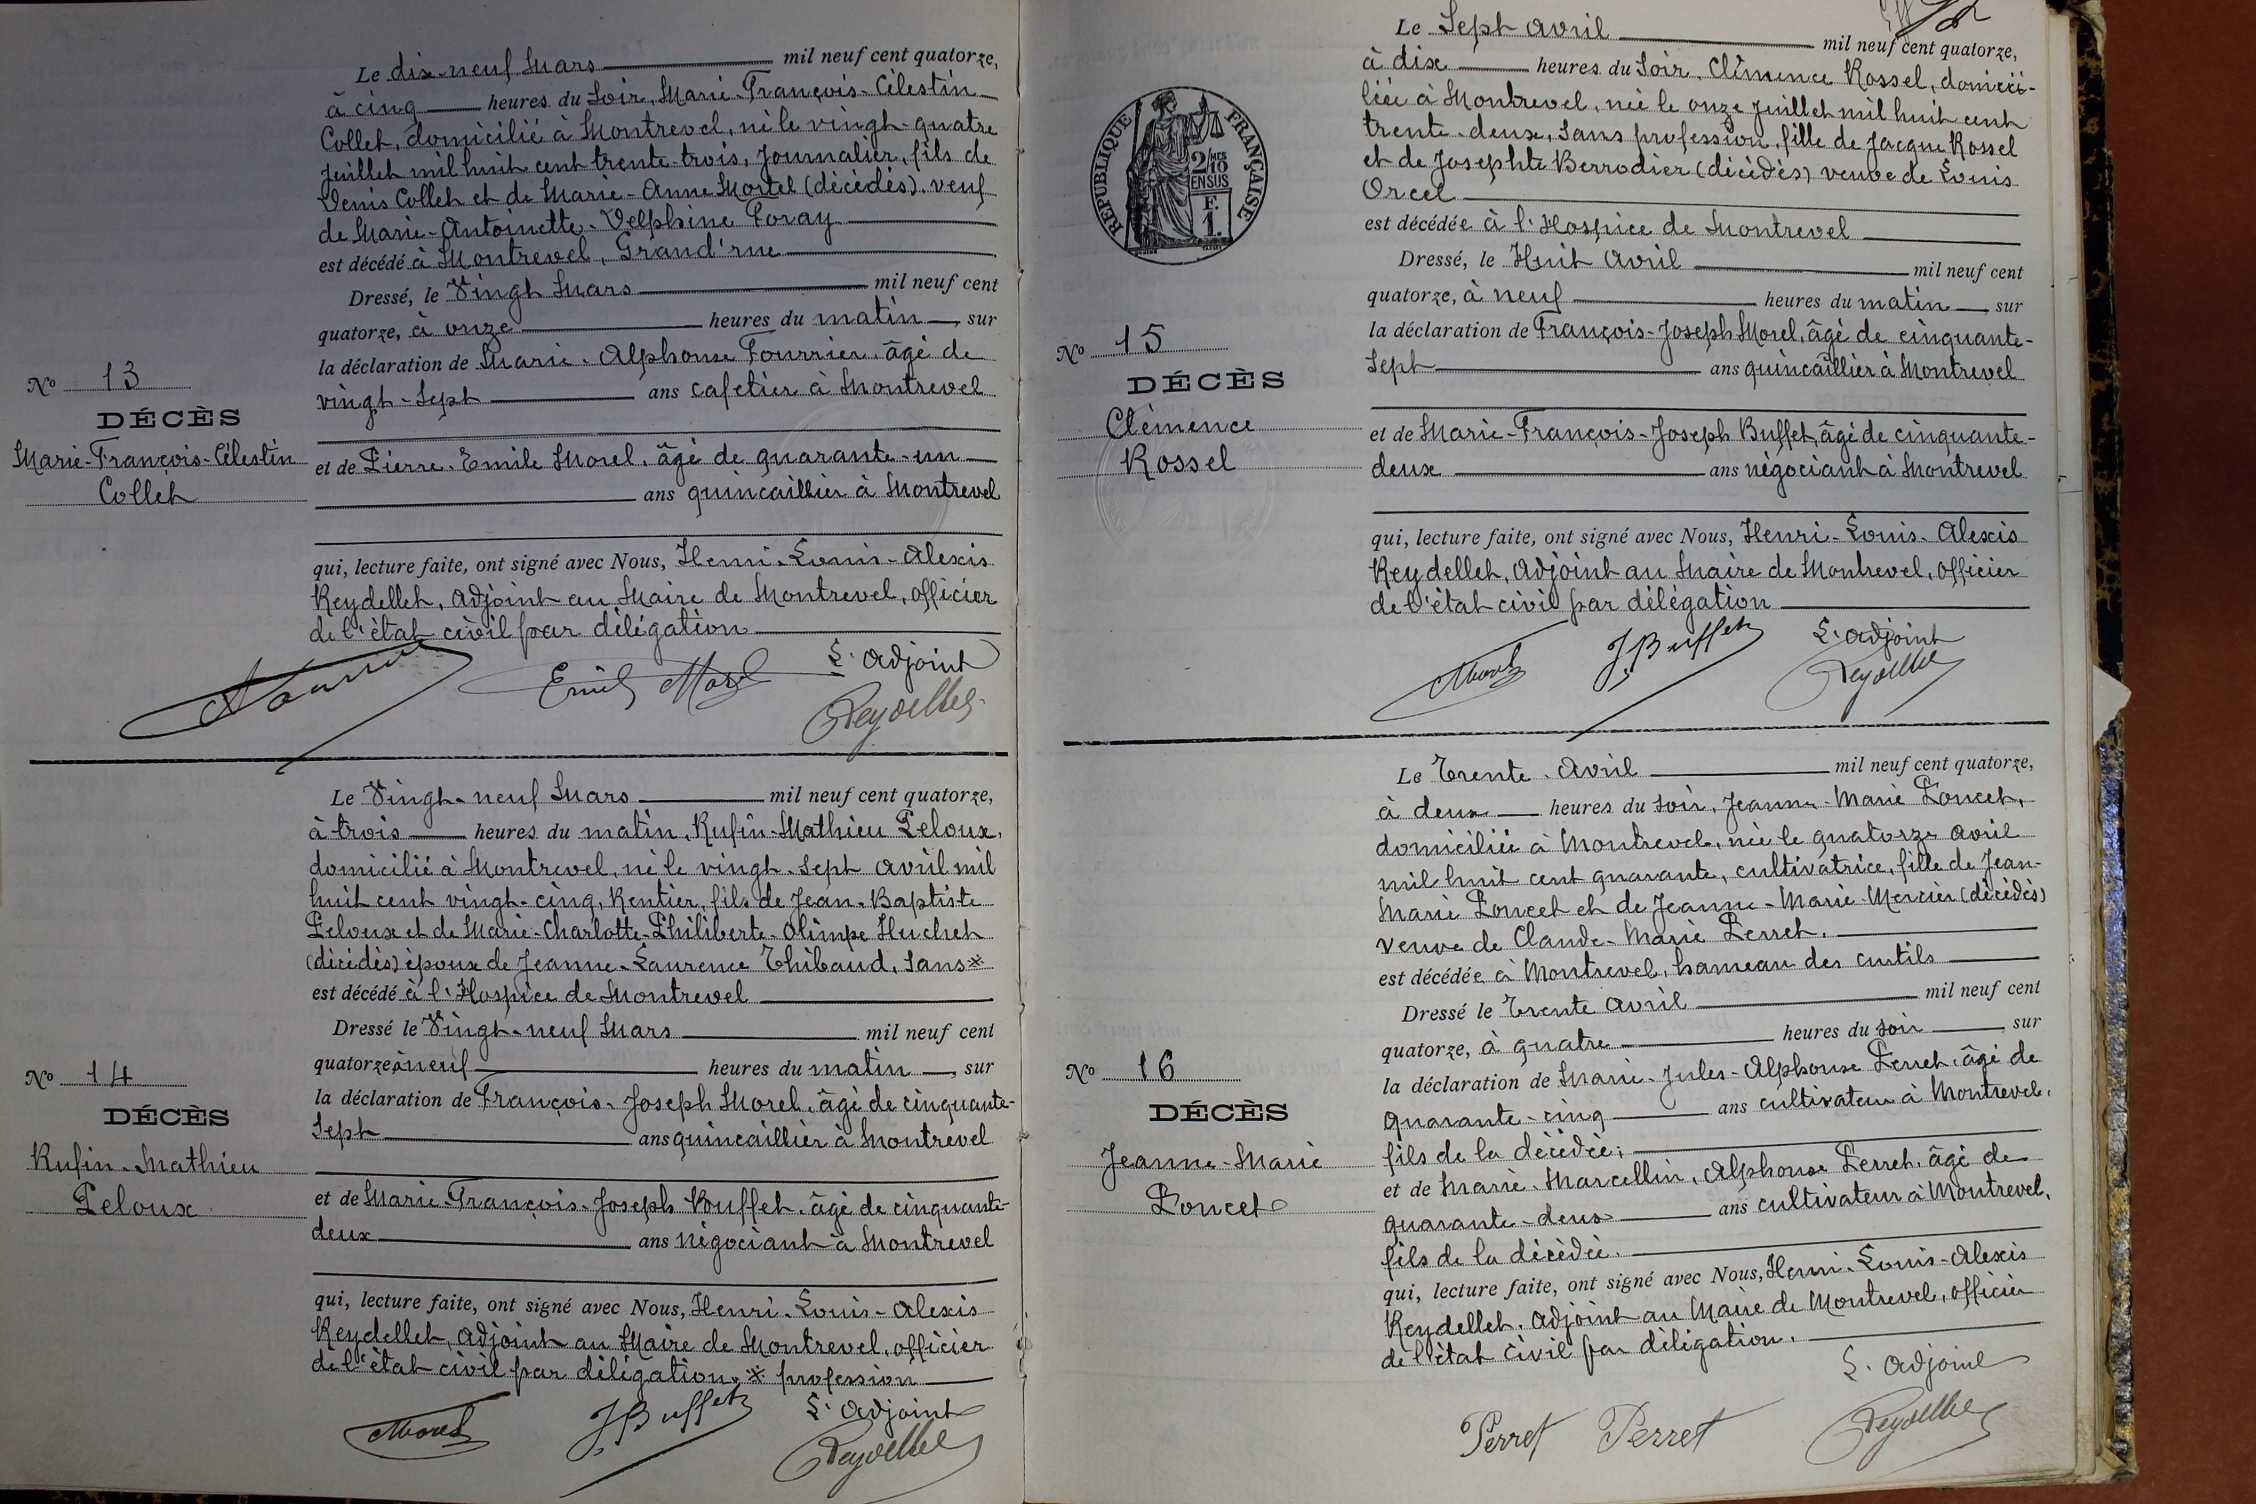 Le dix-neuf Mars mil neuf cent quatorze,
à cinq heures du Soir, Marie-François-Célestin
Collet, domicilié à Montrevel, né le vingt-quatre
juillet mil huit cent trente-trois, Journalier, fils de
Denis Collet et de Marie-Anne Mortel (décédés). veuf
de Marie-Antoinette-Delphine Foray
est décédé à Montrevel, Grand'rue
Dressé, le Vingt Mars mil neuf cent
quatorze, à onze heures du matin, sur
la déclaration de Marie-Alphonse Fourrier, âgé de
vingt-sept ans cafetier à Montrevel
et de Pierre-Emile Morel, âgé de quarante-un
ans quincaillier à Montrevel
qui, lecture faite, ont signé avec Nous, Henri-Louis-Alexis
Reydellet, Adjoint au Maire de Montrevel, officier
de l'état civil par délégation
L'adjoint
Emile Morel
Reydellet
No 13
DÉCÈS
Marie-François-Célestin
Collet
Le Vingt-neuf Mars mil neuf cent quatorze,
à trois heures du matin, Rufin-Mathieu Peloux,
domicilié à Montrevel, né le vingt-sept avril mil
huit cent vingt-cinq, Rentier, fils de Jean-Baptiste
Peloux et de Marie-Charlotte-Philiberte-Olimpe Huchet
(décédés) époux de Jeanne-Laurence Thibaud, sans※
est décédé à l'Hospice de Montrevel
Dressé le Vingt-neuf Mars mil neuf cent
quatorze à neuf heures du matin, sur
la déclaration de François-Joseph Morel, âgé de cinquante-
sept ans quincaillier à Montrevel
et de Marie-François-Joseph Bouffet, âgé de cinquante-
deux ans négociant à Montrevel
qui, lecture faite, ont signé avec Nous, Henri-Louis-Alexis
Reydellet, adjoint au Maire de Montrevel, officier
de l'état civil par délégation. ※ profession
L'adjoint
Morel J. Buffet
Reydellet
No 14
DÉCÈS
Rufin-Mathieu
Peloux
Le Sept avril mil neuf cent quatorze,
à dix heures du Soir, Clémence Rossel, domici-
liée à Montrevel, née le onze juillet mil huit cent
trente-deux, sans profession, fille de Jacque Rossel
et de Josephte Berrodier (décédés) veuve de Louis
Orcel
est décédée à l'Hospice de Montrevel
Dressé, le Huit Avril mil neuf cent
quatorze, à neuf heures du matin, sur
la déclaration de François-Joseph Morel, âgé de cinquante-
sept ans quincaillier à Montrevel
et de Marie-François-Joseph Buffet, âgé de cinquante-
deux ans négociant à Montrevel
qui, lecture faite, ont signé avec Nous, Henri-Louis-Alexis
Reydellet, Adjoint au Maire de Montrevel, officier
de l'état civil par délégation
L'adjoint
Morel J. Buffet
Reydellet
RÉPUBLIQUE FRANÇAISE
2/10
EN SUS
F.
1.
No 15
DÉCÈS
Clémence
Rossel
Le Trente Avril mil neuf cent quatorze,
à deux heures du soir, Jeanne-Marie Poncet,
domiciliée à Montrevel, née le quatorze avril
mil huit cent quarante, cultivatrice, fille de Jean-
Marie Poncet et de Jeanne-Marie-Mercier (décédés)
veuve de Claude-Marie Perret.
est décédée à Montrevel, hameau des curtils
Dressé le Trente avril mil neuf cent
quatorze, à quatre heures du soir, sur
la déclaration de Marie-Jules-Alphonse Perret, âgé de
quarante-cinq ans cultivateur à Montrevel,
fils de la décédée;
et de Marie-Marcellin, Alphonse Perret, âgé de
quarante-deux ans cultivateur à Montrevel,
fils de la décédée.
qui, lecture faite, ont signé avec Nous, Henri-Louis-Alexis
Reydellet, adjoint au Maire de Montrevel, officier
de l'état civil par délégation.
L'adjoint
Perret Perret
Reydellet
No 16
DÉCÈS
Jeanne-Marie
Poncet